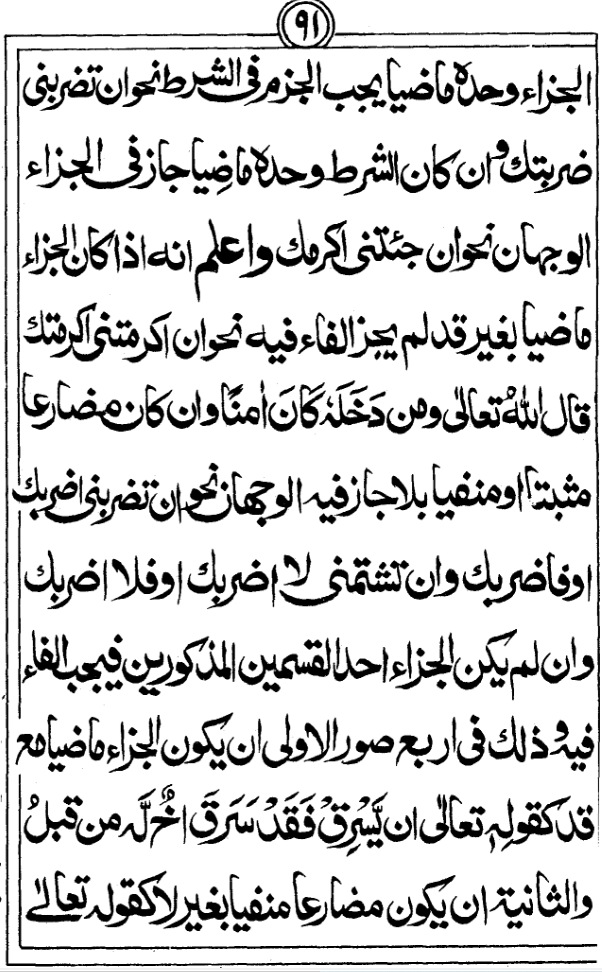 ٩١
الجزاء وحده ماضيا يجب الجزم فى الشرط نحو ان تضربنى
ضربتك وان كان الشرط وحده ماضِيا جاز فى الجزاء
الوجهان نحو ان جئتنى اكرمك واعلم انه اذا كان الجزاء
ماضيا بغير قد لم يجز الفاء فيه نحو ان اكرمتنى اكرمتك
قال اللهُ تعالىٰ ومن دَخَلَهٗ كَانَ اٰمنًا وان كان مضارعا
مثبتًا او منفيا بلا جاز فيه الوجهان نحو ان تضربنى اضربك
او فاضربك وان تشتمنى لا اضربك او فلا اضربك
وان لم يكن الجزاء احد القسمين المذكورين فيجب الفاء
فيه وذلك فى اربع صور الاولى ان يكون الجزاء ماضيا مع
قد كقولهٖ تعالىٰ ان يَّسْرِقْ فَقَدْ سَرَقَ اَخٌ لَّهٗ من قبلُ
والثانية ان يكون مضارعا منفيا بغير لا كقوله تعالىٰ